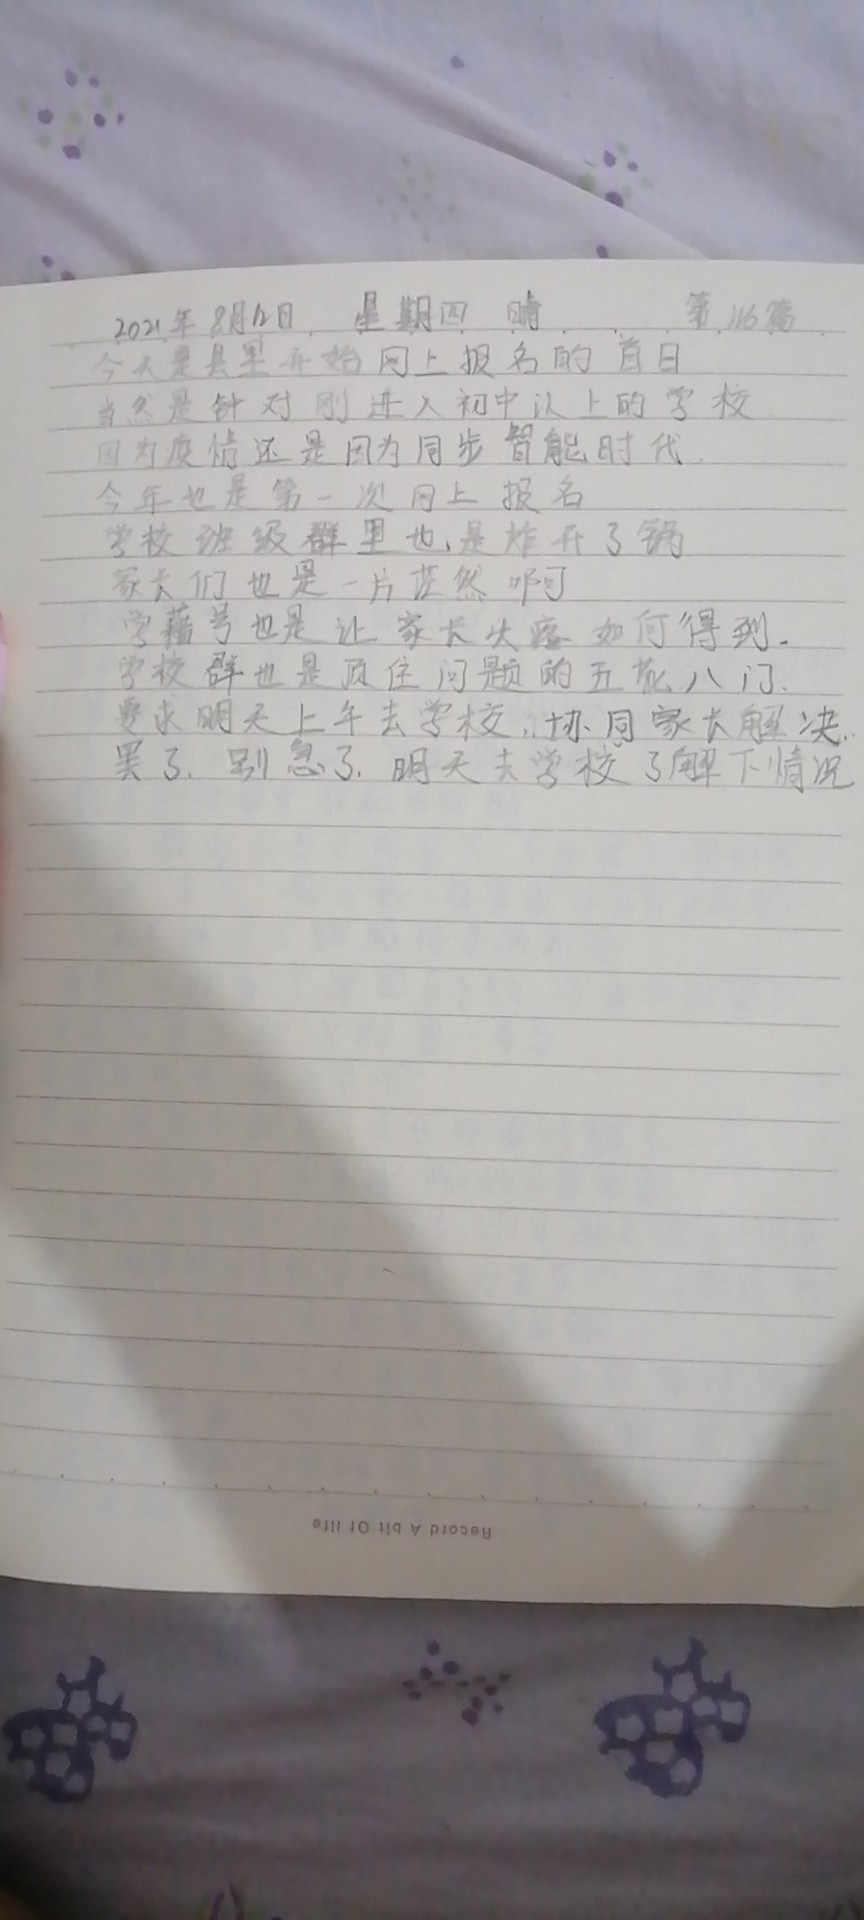 2021年8月12日 星期四 晴 第116篇
今天是县里开始网上报名的首日
当然是针对刚进入初中以上的学校
因为疫情还是因为同步智能时代.
今年也是第一次网上报名
学校班级群里也是炸开了锅
家长们也是一片茫然啊
学籍号也是让家长头疼如何得到.
学校群也是顶住问题的五花八门.
要求明天上午去学校,协同家长解决.
罢了.别急了.明天去学校了解下情况
Record A bit Of life